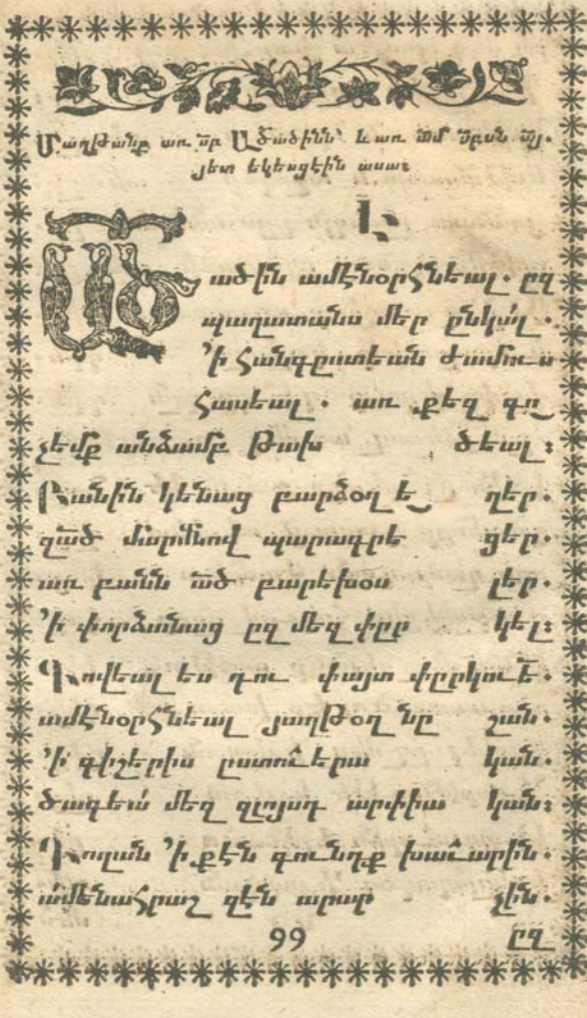 Մաղթանք առ սբ Ածածինն՝ և առ ամ սբսն այ.
յետ եկեսցէին ասա։
Է
ԱԾ ածին ամէնօրհնեալ. ըզ
պաղատանս մեր ընկալ.
՚ի հանգըստեան ժամու ս
հասեալ. առ քեզ գո
չեմք անձամբ թախ ծեալ։
Բանին կենաց բարձօղ ե ղեր.
զած մարմնով պարագրե ցեր.
առ բանն ած բարեխօս լեր.
՚ի փորձանաց ըզ մեզ փըր կել։
Գովեալ ես դու փայտ փըրկու է.
ամէնօրհնեալ յաղթօղ նը շան.
՚ի գիշերիս ըստուերա կան.
ծագեա մեզ զլոյսդ արփիա կան։
Գողան ՚ի քէն գունդք խաւարին.
ամենահրաշ զէն արար չին.
99 ըզ